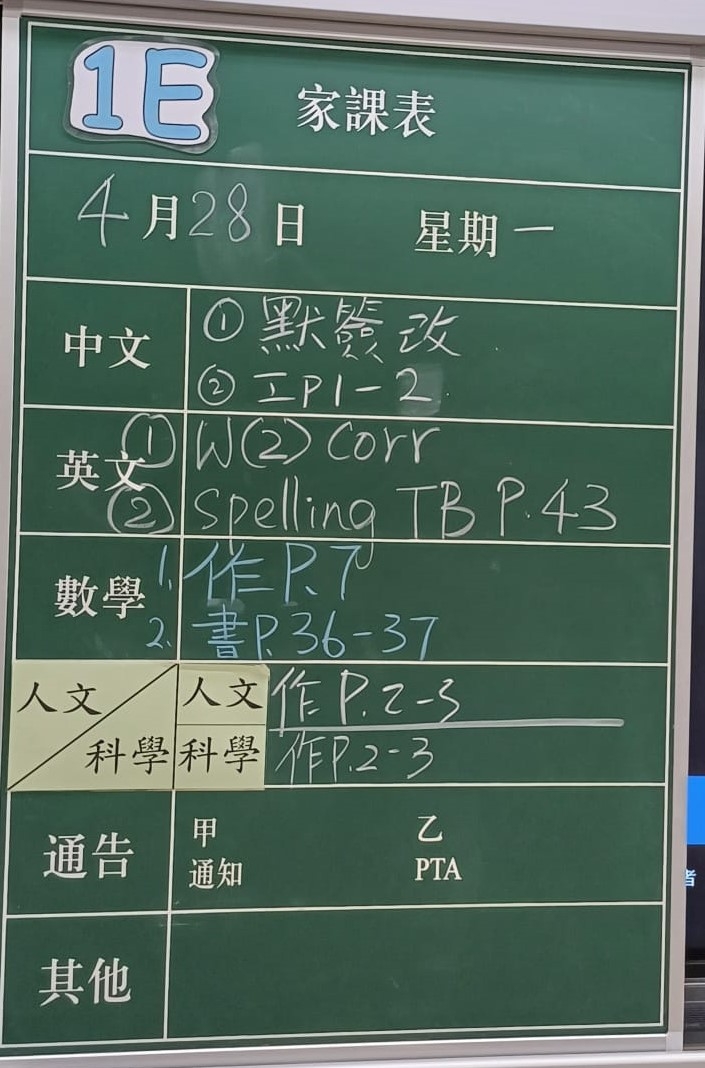 1E
家課表
4月28日 星期一
中文
① 默簽改
② 工P1-2
英文
① W(2) Corr
② Spelling TB P.43
數學
1. 作P.7
2. 書P.36-37
人文
科學
人文 作P.2-3
科學 作P.2-3
通告
甲 乙
通知 PTA
其他
者